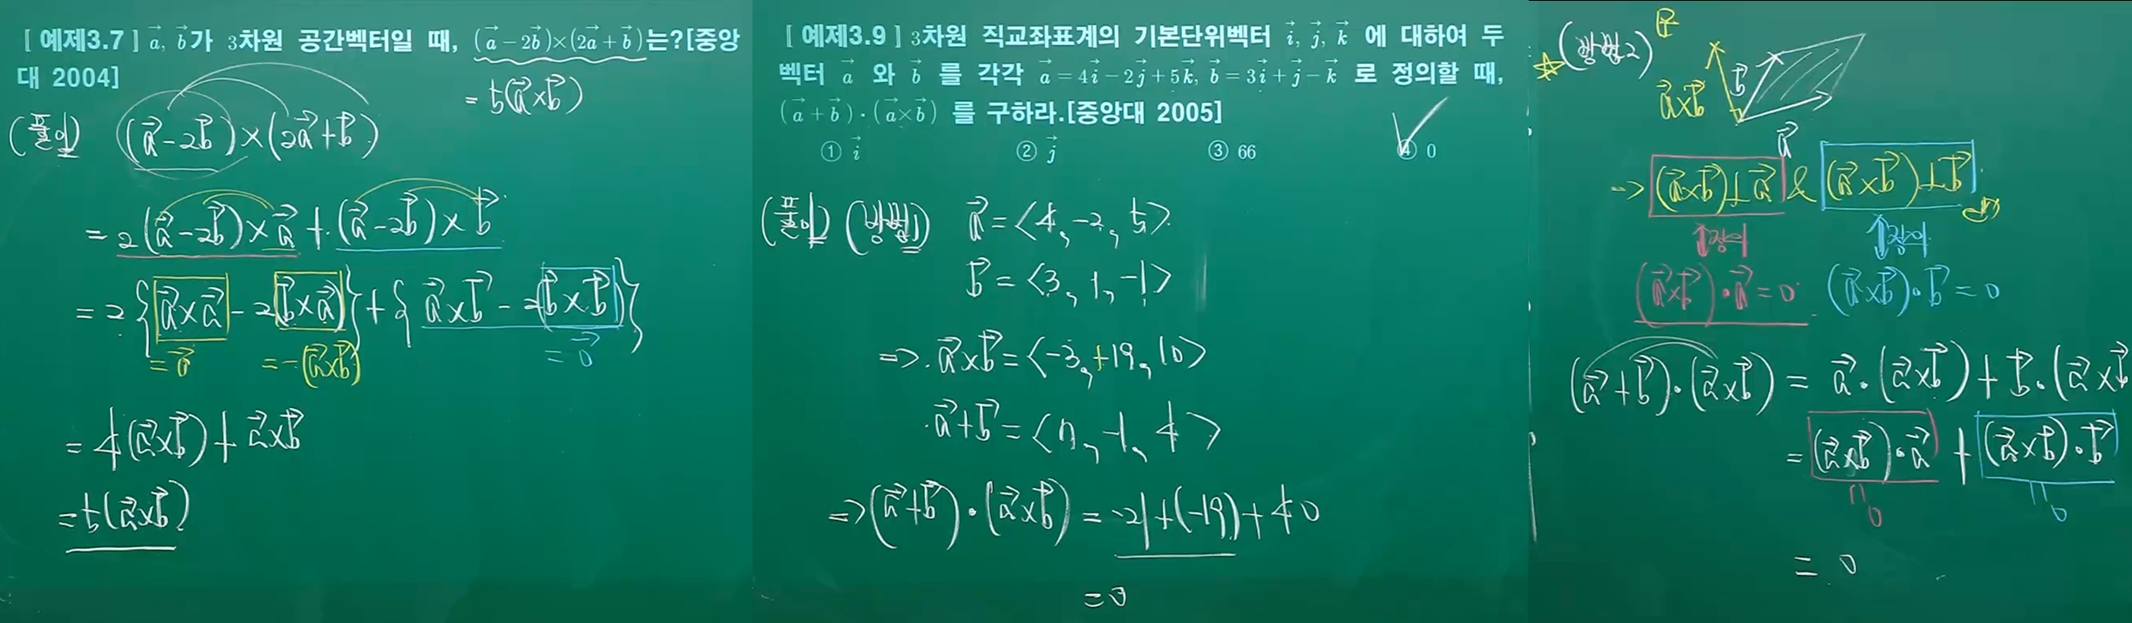 [ 예제3.7 ] a⃗, b⃗가 3차원 공간벡터일 때, (a⃗ − 2b⃗)×(2a⃗ + b⃗)는?[중앙
대 2004]
= 5(a⃗×b⃗)
(풀이) (a⃗−2b⃗)×(2a⃗+b⃗)
= 2(a⃗−2b⃗)×a⃗ + (a⃗−2b⃗)×b⃗
= 2{a⃗×a⃗ − 2(b⃗×a⃗)} + {a⃗×b⃗ − 2(b⃗×b⃗)}
= 0⃗ = −(a⃗×b⃗) = 0⃗
= 4(a⃗×b⃗) + a⃗×b⃗
= 5(a⃗×b⃗)
[ 예제3.9 ] 3차원 직교좌표계의 기본단위벡터 i⃗, j⃗, k⃗ 에 대하여 두
벡터 a⃗ 와 b⃗ 를 각각 a⃗ = 4i⃗ − 2j⃗ + 5k⃗, b⃗ = 3i⃗ + j⃗ − k⃗ 로 정의할 때,
(a⃗ + b⃗)·(a⃗×b⃗) 를 구하라.[중앙대 2005]
① i⃗ ② j⃗ ③ 66 ④ 0
(풀이) (방법1) a⃗ = <4, −2, 5>
b⃗ = <3, 1, −1>
⇒ a⃗×b⃗ = <−3, +19, 10>
a⃗+b⃗ = <7, −1, 4>
⇒ (a⃗+b⃗)·(a⃗×b⃗) = −21+(−19)+40
= 0
☆(방법2)
a⃗×b⃗ b⃗
a⃗
⇒ (a⃗×b⃗)⊥a⃗ & (a⃗×b⃗)⊥b⃗
⇕정의 ⇕정의
(a⃗×b⃗)·a⃗ = 0 (a⃗×b⃗)·b⃗ = 0
(a⃗+b⃗)·(a⃗×b⃗) = a⃗·(a⃗×b⃗) + b⃗·(a⃗×b⃗
= (a⃗×b⃗)·a⃗ + (a⃗×b⃗)·b⃗
0 0
= 0